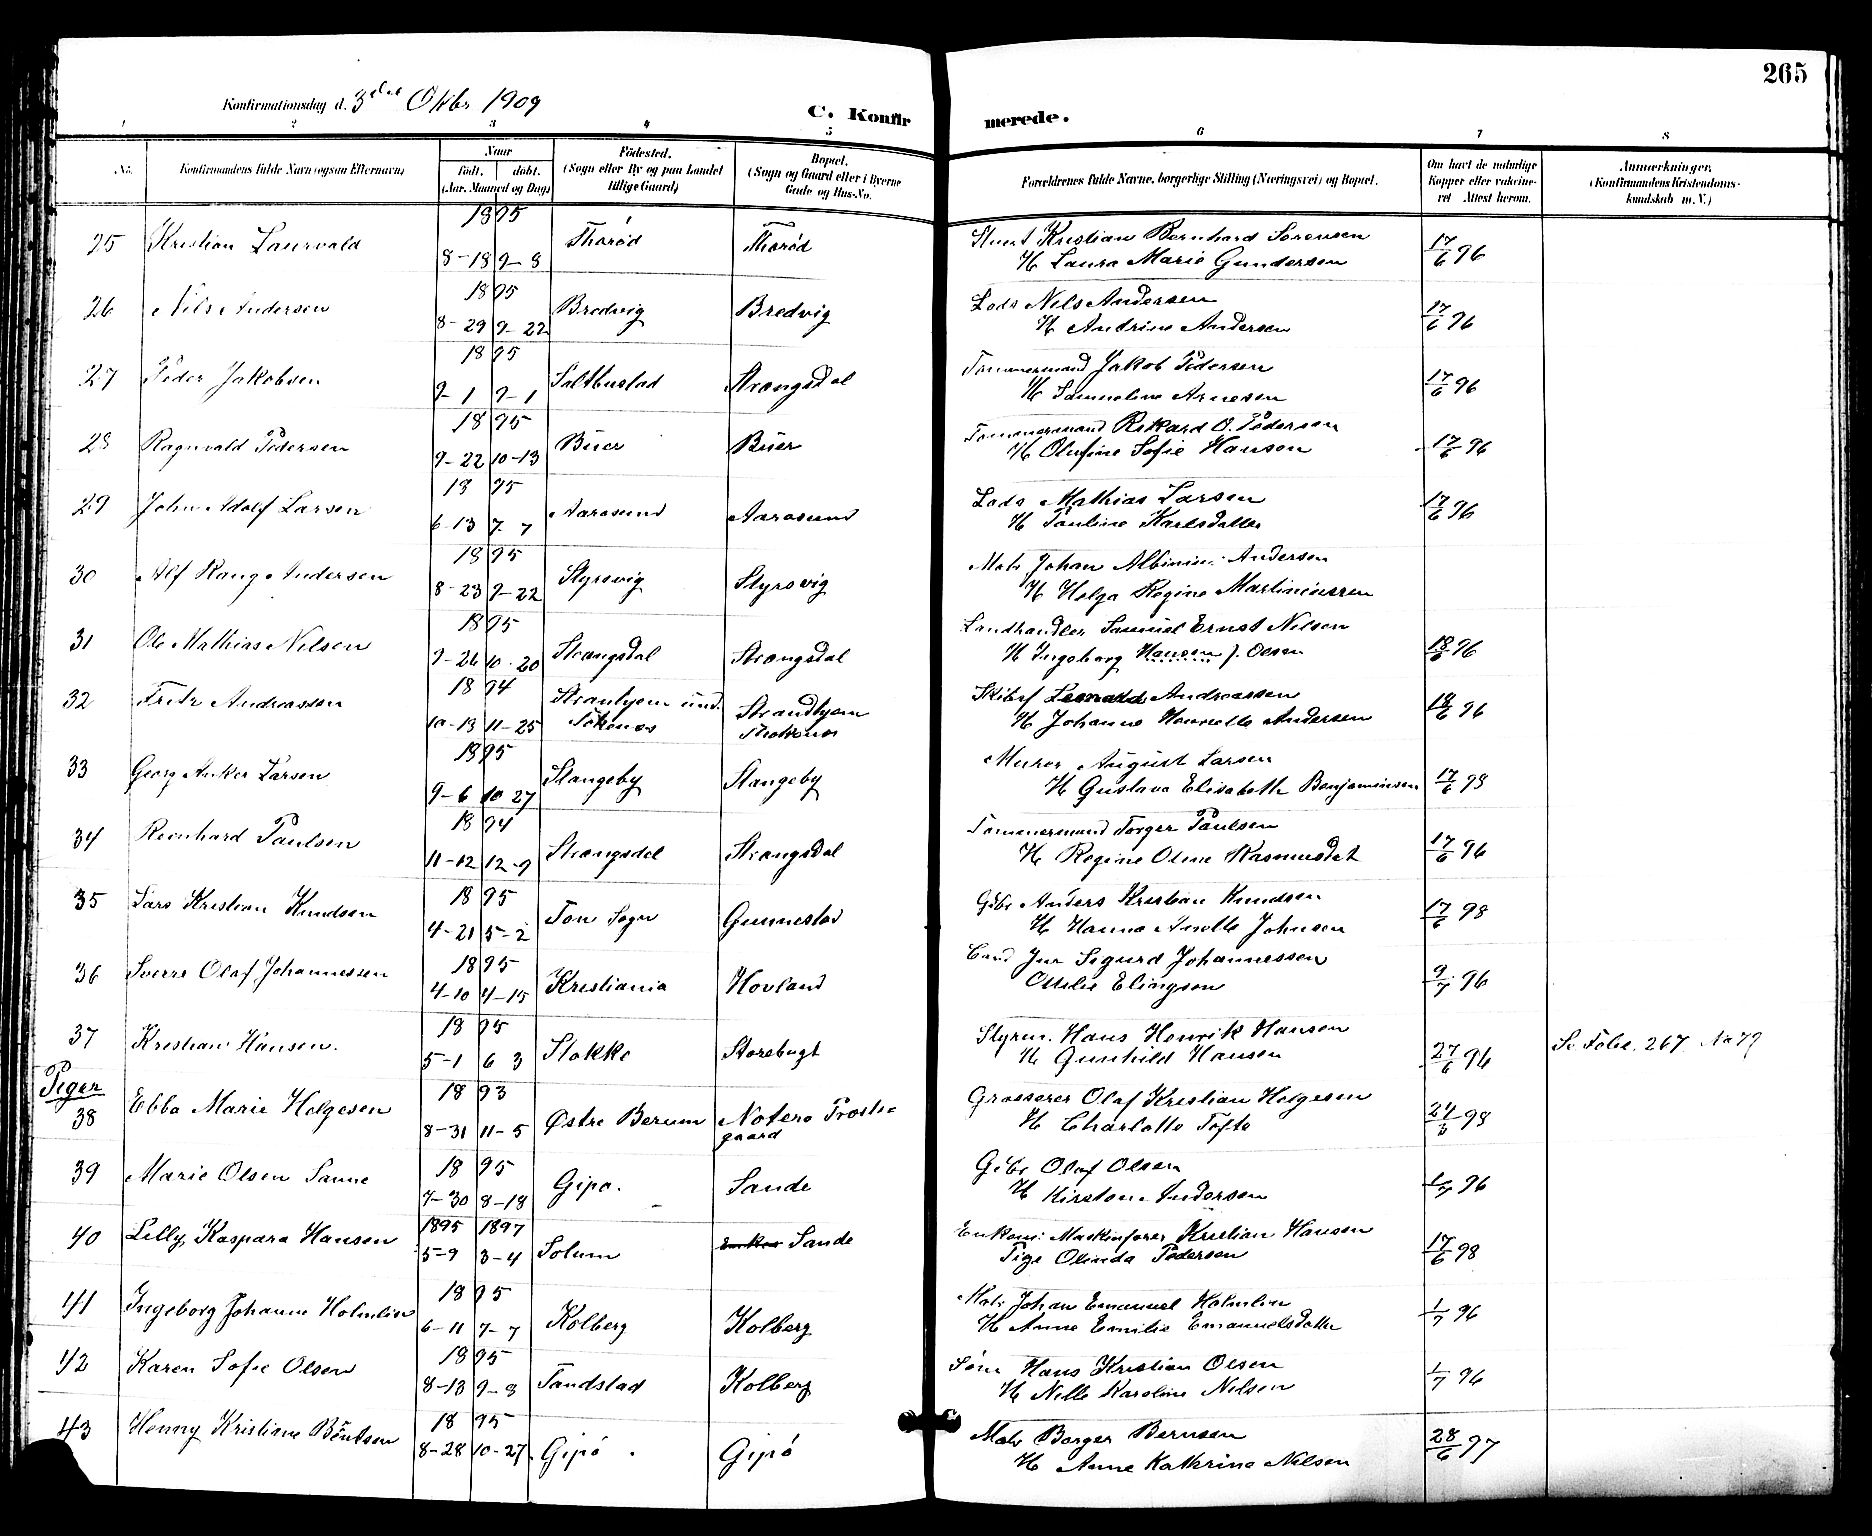 265
Konfirmationsdag d. 3die Oktbr 1909
C. Konfirmerede.
1 2 3 4 5 6 7 8
No.
Konfirmandens fulde Navn (ogsaa Efternavn)
Naar
født. døbt.
(Aar. Maaned og Dag)
Fødested.
(Sogn eller By og paa Landet
tillige Gaard)
Bopæl.
(Sogn og Gaard eller i Byerne
Gade og Hus-No.
Forældrenes fulde Navne, borgerlige Stilling (Næringsvei) og Bopæl.
Om havt de naturlige
Kopper eller vakcine-
ret Attest herom.
Anmærkninger.
(Konfirmandens Kristendoms-
kundskab m. V.)
25 Kristian Laurvald 1895 8-18 9-8 Thorød Thorød Stuert Kristian Bernhard Sörensen 17/6 96
H Laura Marie Gundersen
26 Nils Andersen 1895 8-29 9-22 Bredvig Bredvig Lods Nils Andersen 17/6 96
H Andrine Andersen
27 Peder Jakobsen 1895 9-1 9-1 Salthustad Strængsdal Tømmermand Jakob Pedersen 17/6 96
H Samueline Arnesen
28 Ragnvald Pedersen 1895 9-22 10-13 Büer Büer Tømmermand Rikard O. Pedersen 17/6 96
H Olufine Sofie Hansen
29 John Adolf Larsen 1895 6-13 7-7 Aarøsund Aarøsund Lods Mathias Larsen 17/6 96
H Pauline Karlsdatter
30 Alf Rang Andersen 1895 8-23 9-22 Styrsvig Styrsvig Matr Johan Albinius Andersen
H Helga Regine Martiniussen
31 Ole Mathias Nilsen 1895 9-26 10-20 Strængsdal Strængsdal Landhandler Samuel Ernst Nilsen 18/6 96
H Ingeborg Hansen f. Olsen
32 Fritz Andreassen 1894 10-13 11-25 Stranhjem und. Strandhjem Skibsf Leonard Andreassen 18/6 96
Tokenæs Thokenæs H Johanne Henriette Andersen
33 Georg Anker Larsen 1895 9-6 10 27 Stangeby Stangeby Murer August Larsen 17/6 98
H Gustava Elisabeth Benjaminsen
34 Reinhard Paulsen 1894 11-12 12-9 Strængsdal Strængsdal Tømmermand Torger Paulsen 17/6 96
H Regine Oline Rasmusdat
35 Lars Kristian Knudsen 1895 4-21 5-2 Ton Sogn Gunnestad Gbr Anders Kristian Knudsen 17/6 98
H Hanna Anette Johnsen
36 Sverre Olaf Johannessen 1895 4-10 4-15 Kristiania Hovland Cand Jur Sigurd Johannessen 9/7 96
Ottilie Elingsen
37 Kristian Hansen. 1895 5-1 6 3 Stokke Storebugt Styrm. Hans Henrik Hansen 27/6 96 Se Folie. 267 No 79
H Gunhild Hansen
Piger
38 Ebba Marie Helgesen 1893 8-31 11-5 Østre Berum Noterø Præste Grosserer Olaf Kristian Helgesen 24/5 98
gaard H Charlotte Tofte
39 Marie Olsen Sanne 1895 7-30 8-18 Gipø. Sande Gbr Olaf Olsen 1/7 96
H Kirsten Andersen
40 Lilly Kaspara Hansen 1895 5-9 1897 3-4 Solum Sande Enkem: Maskinfører Kristian Hansen 17/6 98
Pige Olinda Pedersen
41 Ingeborg Johanne Holmlin 1895 6-11 7-7 Kolberg Kolberg Matr Johan Emanuel Holmlin 1/7 96
H Anne Emilie Emanuelsdatter
42 Karen Sofie Olsen 1895 8-13 9-8 Tandstad Kolberg Søm Hans Kristian Olsen 1/7 96
H Nille Karoline Nilsen
43 Henny Kristiane Béntsen 1895 8-28 10-27 Gipø Gipø Matr Borger Bernsen 28/6 97
H Anne Kathrine Nilsen